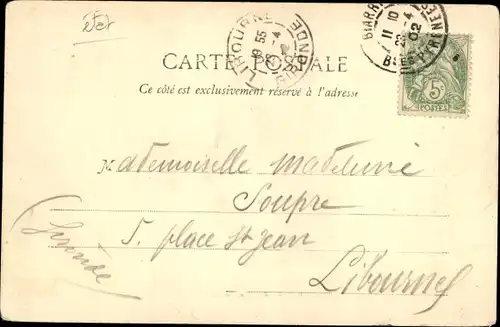 LIBOURNE
GIRONDE
BIARR
11 10
23 -4
02
PYRENEES
CARTE POSTALE
Ce côté est exclusivement réservé à l'adresse
5c
POSTES
Mademoiselle Madeleine
Soupre
5. place St Jean
Libourne
(Gironde)